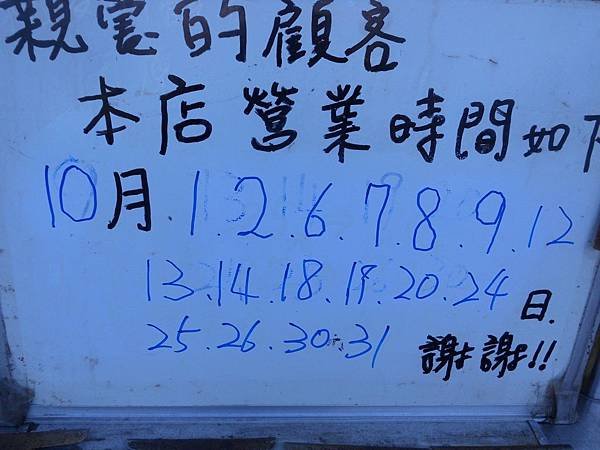 親愛的顧客
本店營業時間如下
10月.1.2.6.7.8.9.12
13.14.18.19.20.24
25.26.30.31 日.
謝謝!!